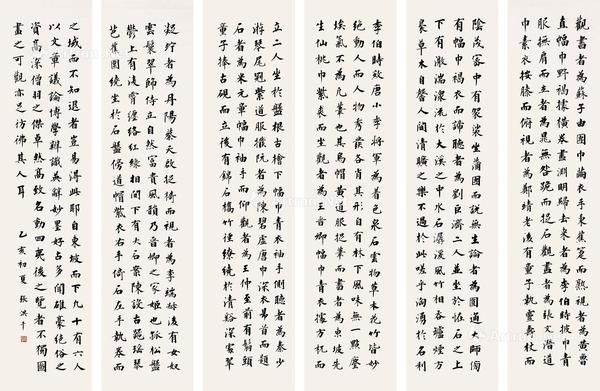 觀書者為蘇子由團巾繭衣手秉蕉箑而熟視者為黃魯
直幅巾野褐據橫卷畫淵明歸去來者為李伯時披巾青
服撫肩而立者為晁無咎跪而捉石觀畫者為張文潛道
巾素衣按膝而俯視者為鄭靖老後有童子執靈壽杖而
陰茂密中有袈裟坐蒲團而說無生論者為圓通大師傍
有幅巾褐衣而諦聽者為劉巨濟二人並坐於怪石之上
下有激湍潨流於大溪之中水石潺湲風竹相吞爐煙方
裊草木自馨人間清曠之樂不過於此嗟乎洶湧於名利
李伯時效唐小李將軍為着色泉石雲物草木花竹皆妙
絕動人而人物秀發各肖其形自有林下風味無一點塵
埃氣不為凡筆也其烏帽黃道服捉筆而書者為東坡先
生仙桃巾紫裘而坐觀者為王晉卿幅巾青衣據方机而
立二人坐於盤根古檜下幅巾青衣袖手側聽者為秦少
游琴尾冠紫道服摘阮者為陳碧虛唐巾深衣昂首而題
石者為米元章幅巾袖手而仰觀者為王仲至前有鬅頭
童子捧古硯而立後有錦石橋竹徑繚繞於清谿深處翠
凝竚者為丹陽蔡天啟捉椅而視者為李端叔後有女奴
雲鬟翠飾侍立自然富貴風韻乃晉卿之家姬也孤松盤
鬱上有淩霄纏絡紅綠相間下有大石案陳設古器瑤琴
芭蕉圍繞坐於石盤傍道帽紫衣右手倚石左手執卷而
之域而不知退者豈易得此耶自東坡而下凡十有六人
以文章議論博學辨識英辭妙墨好古多聞雄豪絕俗之
資高深僧羽之傑卓然高致名動四夷後之覽者不獨圖
畫之可觀亦足仿佛其人耳 乙亥初夏 張洪千